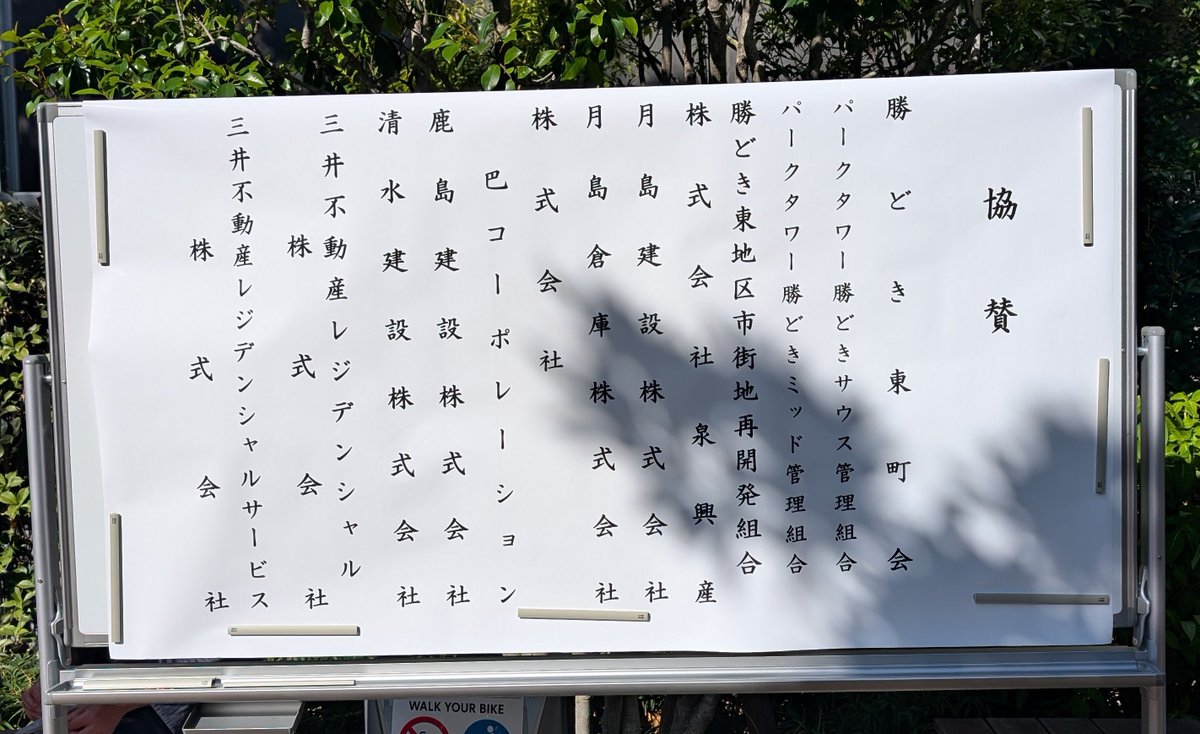 協賛
勝どき東町会
パークタワー勝どきサウス管理組合
パークタワー勝どきミッド管理組合
勝どき東地区市街地再開発組合
株式会社泉興産
月島建設株式会社
月島倉庫株式会社
株式会社
巴コーポレーション
鹿島建設株式会社
清水建設株式会社
三井不動産レジデンシャル
株式会社
三井不動産レジデンシャルサービス
株式会社
WALK YOUR BIKE